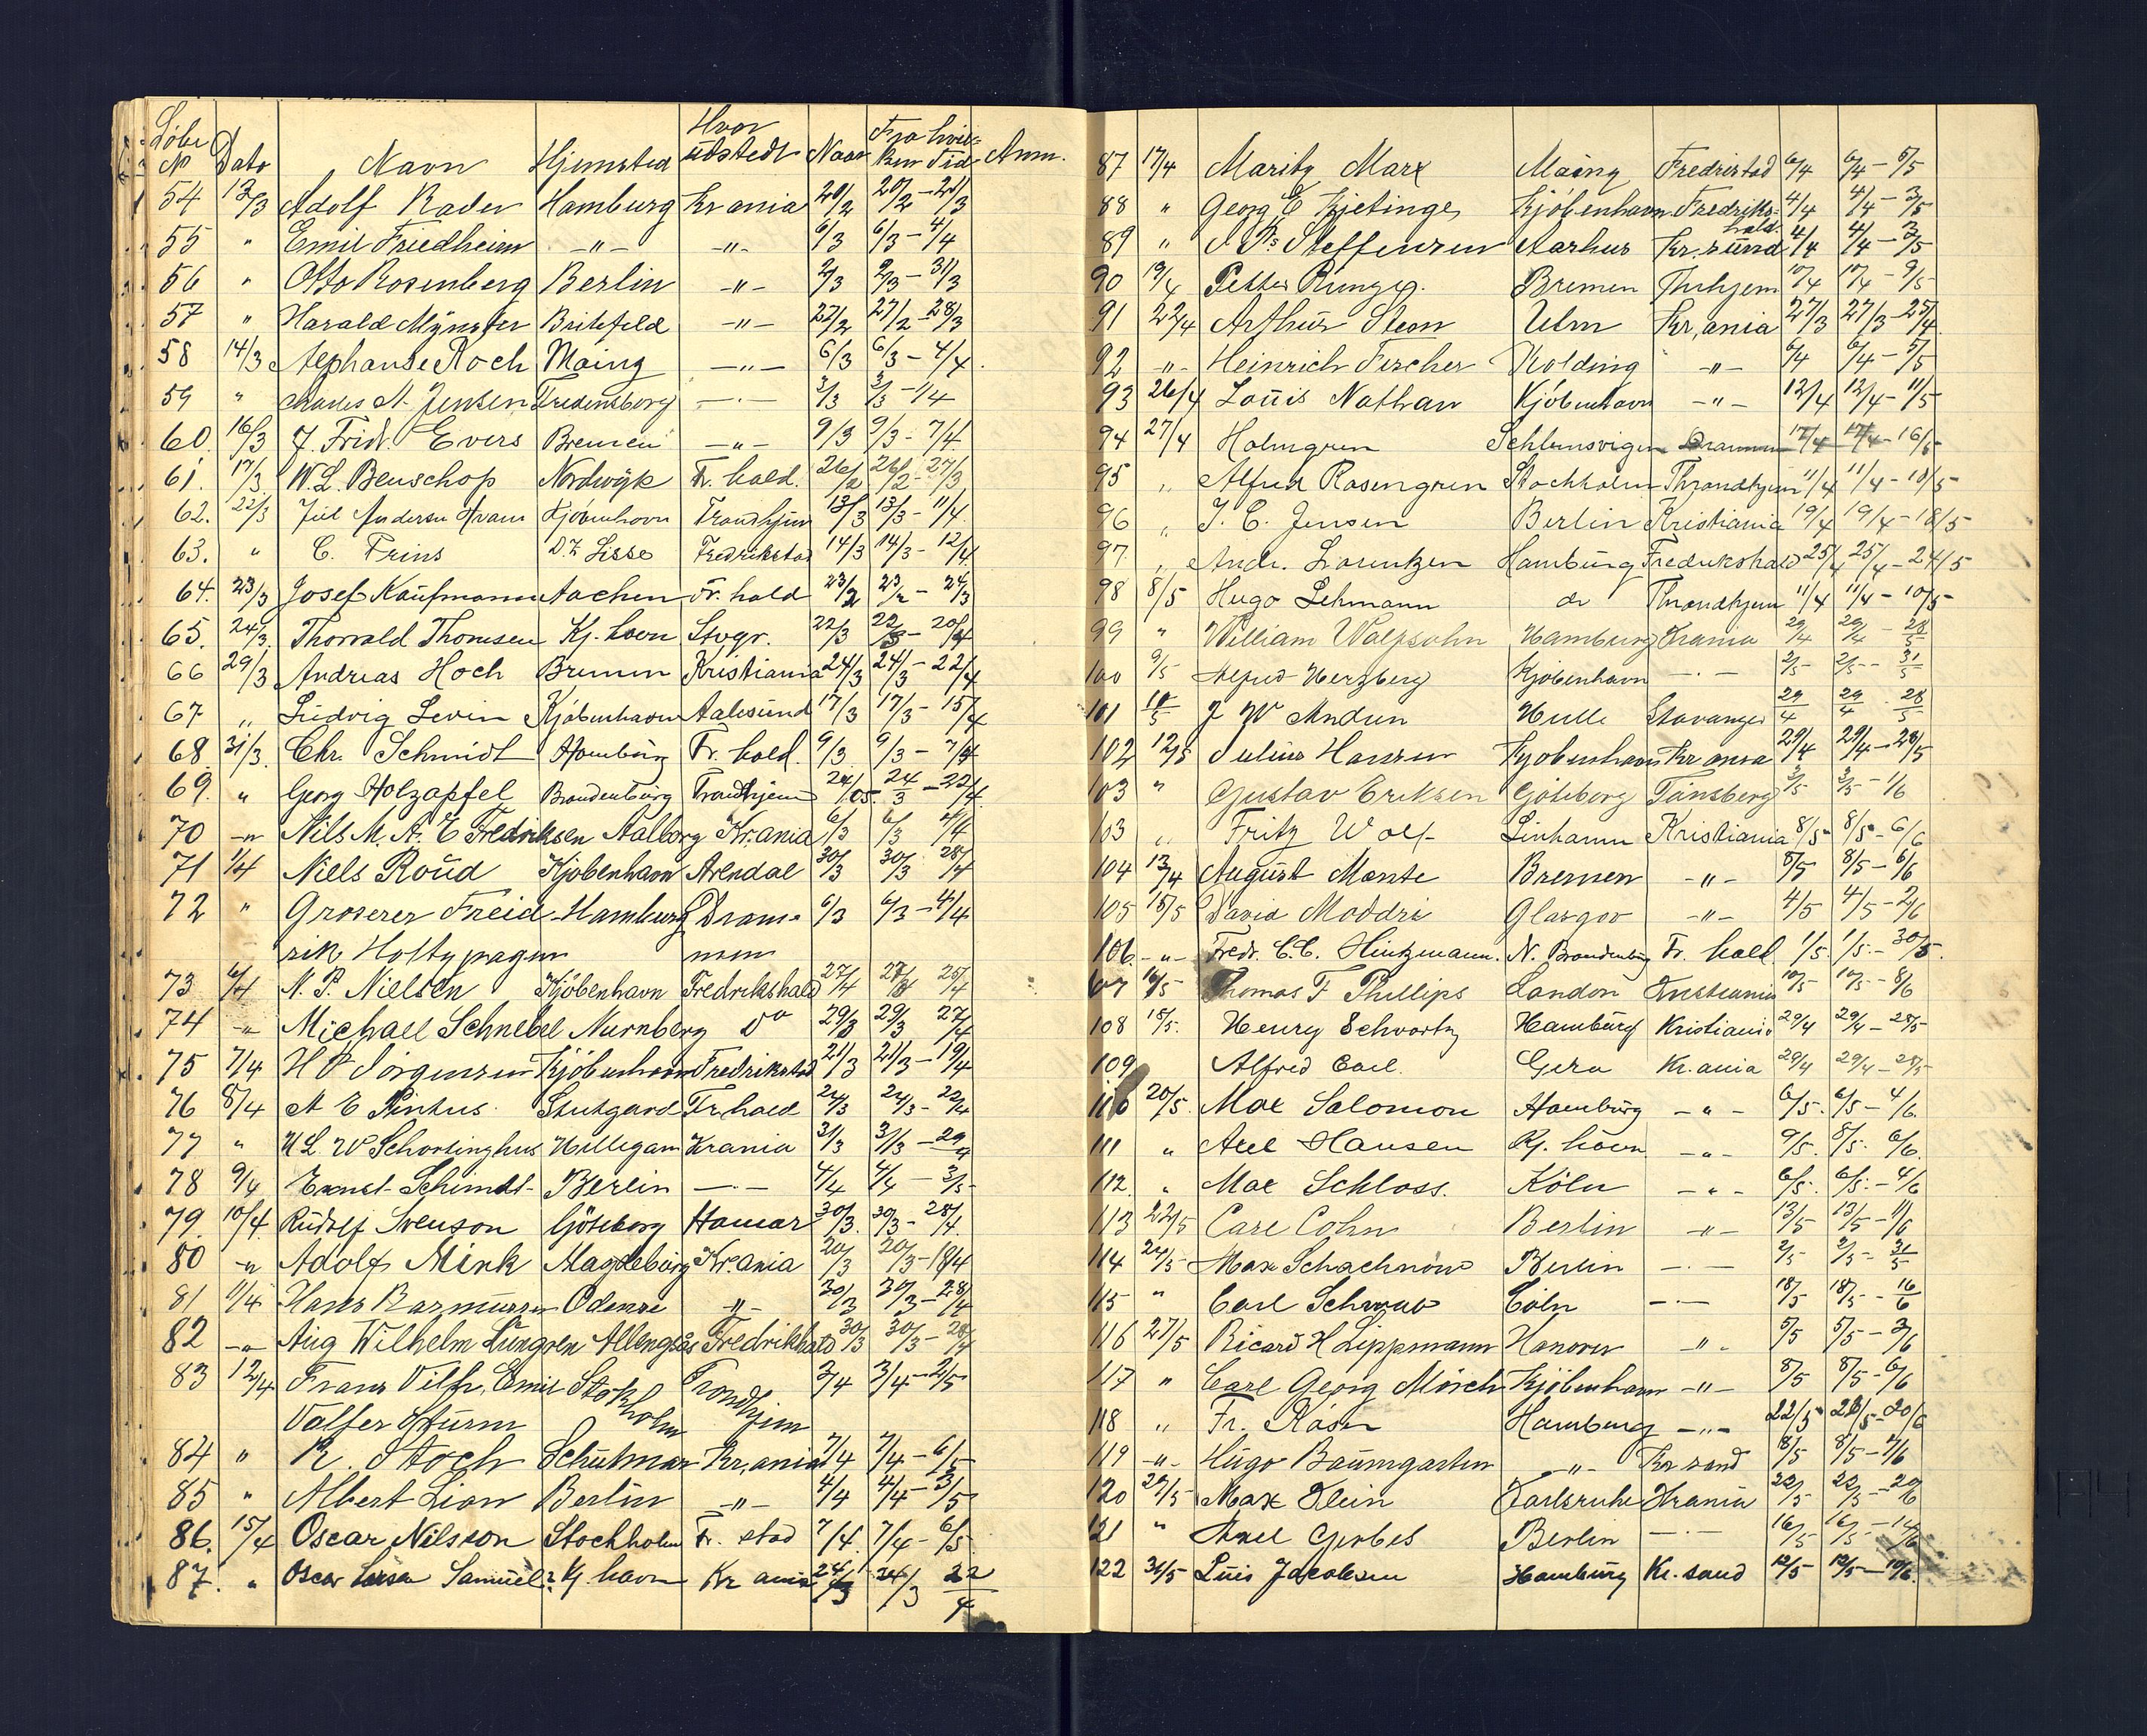 Løbe Hvor Fra hvil-
No Dato Navn Hjemsted udstedt Naar ken Tid Anm.
54 12/3 Adolf Rader Hamburg Kr ania 20/2 20/2 - 21/3
55 " Emil Friedheim -"- -"- 6/3 6/3 - 4/4
56 " Otto Rosenberg Berlin -"- 2/3 2/3 - 31/3
57 " Harald Mÿnster -"- 27/2 27/2 - 28/3
58 14/3 Alphanse Roch Maing -"- 6/3 6/3 - 4/4
59 " Charles A. Jensen Fredensborg -"- 3/3 3/3 - 1/4
60. 16/3 J. Fridr. Evers Bremen -"- 9/3 9/3 - 7/4
61. 17/3 W. L. Benschop Nordwÿk Fr. hald. 26/2 26/2 - 27/3
62. 22/3 Juel Andersen Kjöbenhavn Trondhjem 13/3 13/3 - 11/4
63. " C. Frins Lisse Fredrikstad 14/3 14/3 - 12/4
64. 23/3 Josef Kaufmann Aachen Fr. hald 23/2 23/2 - 24/3
65. 24/3 Thorvald Thomsen Kj. havn Stvgr. 22/3 22/3 - 20/4
66 29/3 Andreas Hoch Bremen Kristiania 24/3 24/3 - 22/4
67 " Ludvig Levin Kjøbenhavn Aalesund 17/3 17/3 - 15/4
68 31/3 Chr. Schmidt Hamburg Fr. hald. 9/3 9/3 - 7/4
69. " Georg Holzapfel Brandenburg Trondhjem 24/3 05. 24/3 - 22/4
70 -"- Nils M. A. E Fredriksen Aalborg Kr.ania 6/3 6/3 4/4
71 1/4 Niels Roud Kjøbenhavn Arendal 30/3 30/3 28/4
72 " Groserer Freid- Hamburg Dram- 6/3 6/3 - 4/4
rik Holtzpagen men
73 6/4 N. P. Nielsen Kjøbenhavn Fredrikshald 27/4 27/4 25/4
74 -"- Michael Schnebel Nurnberg Do 29/3 29/3 27/4
75 7/4 H P Jörgensen Kjöbenhavn Fredrikstad 21/3 21/3 - 19/4
76 8/4 A E Pintus. Stutgard Fr. hald 24/3 24/3 - 22/4
77 " H. L. W Schortinghus Hilligam Krania 31/3 31/3 - 29/4
78 9/4 Ernst Schmidt Berlin -"- 4/4 4/4 - 3/5
79. 10/4 Rudolf Svenson Göteborg Hamar 30/3. 30/3 - 28/4.
80 -"- Adolf Mink Magdeburg Kr.ania 20/3 20/3 - 18/4
81 11/4 Hans Rasmussen Odense -"- 30/3 30/3 - 28/4
82 -"- Aug Wilhelm Lungren Allengsås Fredrikhald 30/3 30/3 - 28/4
83 12/4 Frans Vilh. Emil Stokholm Trondhjem 3/4 3/4 - 2/5
Valfer Sturm
84 " R. Stoch Schutmar Kr.ania 7/4 7/4 - 6/5
85 " Albert Lion Berlin -"- 4/4 4/4 - 3/5
86. 15/4 Oscar Nilsson Stockholm Fr. stad 7/4. 7/4 - 6/5.
87. " Oscar Samuel Kj. havn Kr ania 24/3 24/3 22/4
87 17/4 Maritz Marx Maing Fredristad 6/4 6/4 - 5/5
88 " Georg E Kjetinge Kjöbenhavn Fredriks- 4/4 4/4 - 3/5
hald.
89 " Steffensen Aarhus Kr. sund 4/4 4/4 - 3/5
90 19/4 Petter Runge. Bremen Thrhjem 10/4 10/4 - 9/5
91 22/4 Arthur Steon Ulm Kr,ania 27/3 27/3 - 25/4
92 -"- Heinrich Fischer Kolding -"- 6/4 6/4 - 5/5
93 26/4 Louis Nathan Kjöbenhavn -"- 12/4 12/4 - 11/5
94 27/4 Holmgren Schlensvigen Drammen 17/4 17/4 - 16/5
95 " Alfred Rosengren Stockholm Throndhjem 11/4 11/4 - 10/5
96 " J. C. Jensen Berlin Kristiania 19/4 19/4 - 18/5
97. " Andr. Lorentzen Hamburg Fredrikshald 25/4 25/4 - 24/5
98 8/5 Hugo Lehmann do Throndhjem 11/4 11/4 - 10/5
99 " William Walfisohn Hamburg Krania 29/4 29/4 - 28/5
100 9/5 Alfred Herzberg Kjøbenhavn -"- 2/5 2/5 - 31/5
101 10/5 J W Andren Hulle Stavanger 29/4 29/4 - 28/5
102 12/5 Julius Hansen Kjobenhavn Kr ania 29/4 29/4 - 28/5
103 " Gustav Eriksen Göteborg Tønsberg 3/5 3/5 - 1/6
103 " Fritz Wolf Linhamn Kristiania 8/5 8/5 - 6/6
104 13/4 August Monte Bremen -"- 8/5 8/5 - 6/6
105 15/5 David Moddri Glasgov -"- 4/5 4/5 - 2/6
106. -"- Fredr. C. C. Hintzmann. N. Brandenburg Fr. hald 1/5. 1/5. - 30/5.
107 16/5 Thomas F Phillips London Kristiania 10/5 10/5 - 8/6
108 18/5. Henry Schvartz Hamburg Kristiania 29/4 29/4 - 28/5
109 Alfred Carl. Gera Kr. ania 29/4 29/4 - 28/5
110 20/5. Max Salomon Hamburg -"- 6/5. 6/5 - 4/6.
111 " Axel Hansen Kj. havn -"- 9/5. 8/5. 6/6.
112. " Max Schloss. Köln -"- 6/5. 6/5. - 4/6
113 22/5 Carl Cohn Berlin -"- 13/5 13/5 - 11/6
114 24/5 Max Schachnow Berlin -"- 2/5 2/5 - 31/5
115 " Carl Schwab Cöln -"- 18/5 18/5 - 16/6
116 27/5 Ricard H Lippmann Hanover " 5/5 5/5 - 3/6
117 " Carl Georg Mörch Kjöbenhavn -"- 8/5 8/5 - 6/6
118 " Fr. Rosen Hamburg -"- 22/5 22/5 - 20/6
119 -"- Hugo Baumgarten -"- Kr sand 8/5 8/5 - 7/6
120 29/5 Max Klein Karlsruhe Krania 22/5 22/5 - 20/6
121 " Axel Gerbel Berlin -"- 16/5 16/5 - 14/6
122 31/5 Luis Jacobsen Hamburg Kr. sand 12/5 12/5 - 10/6.